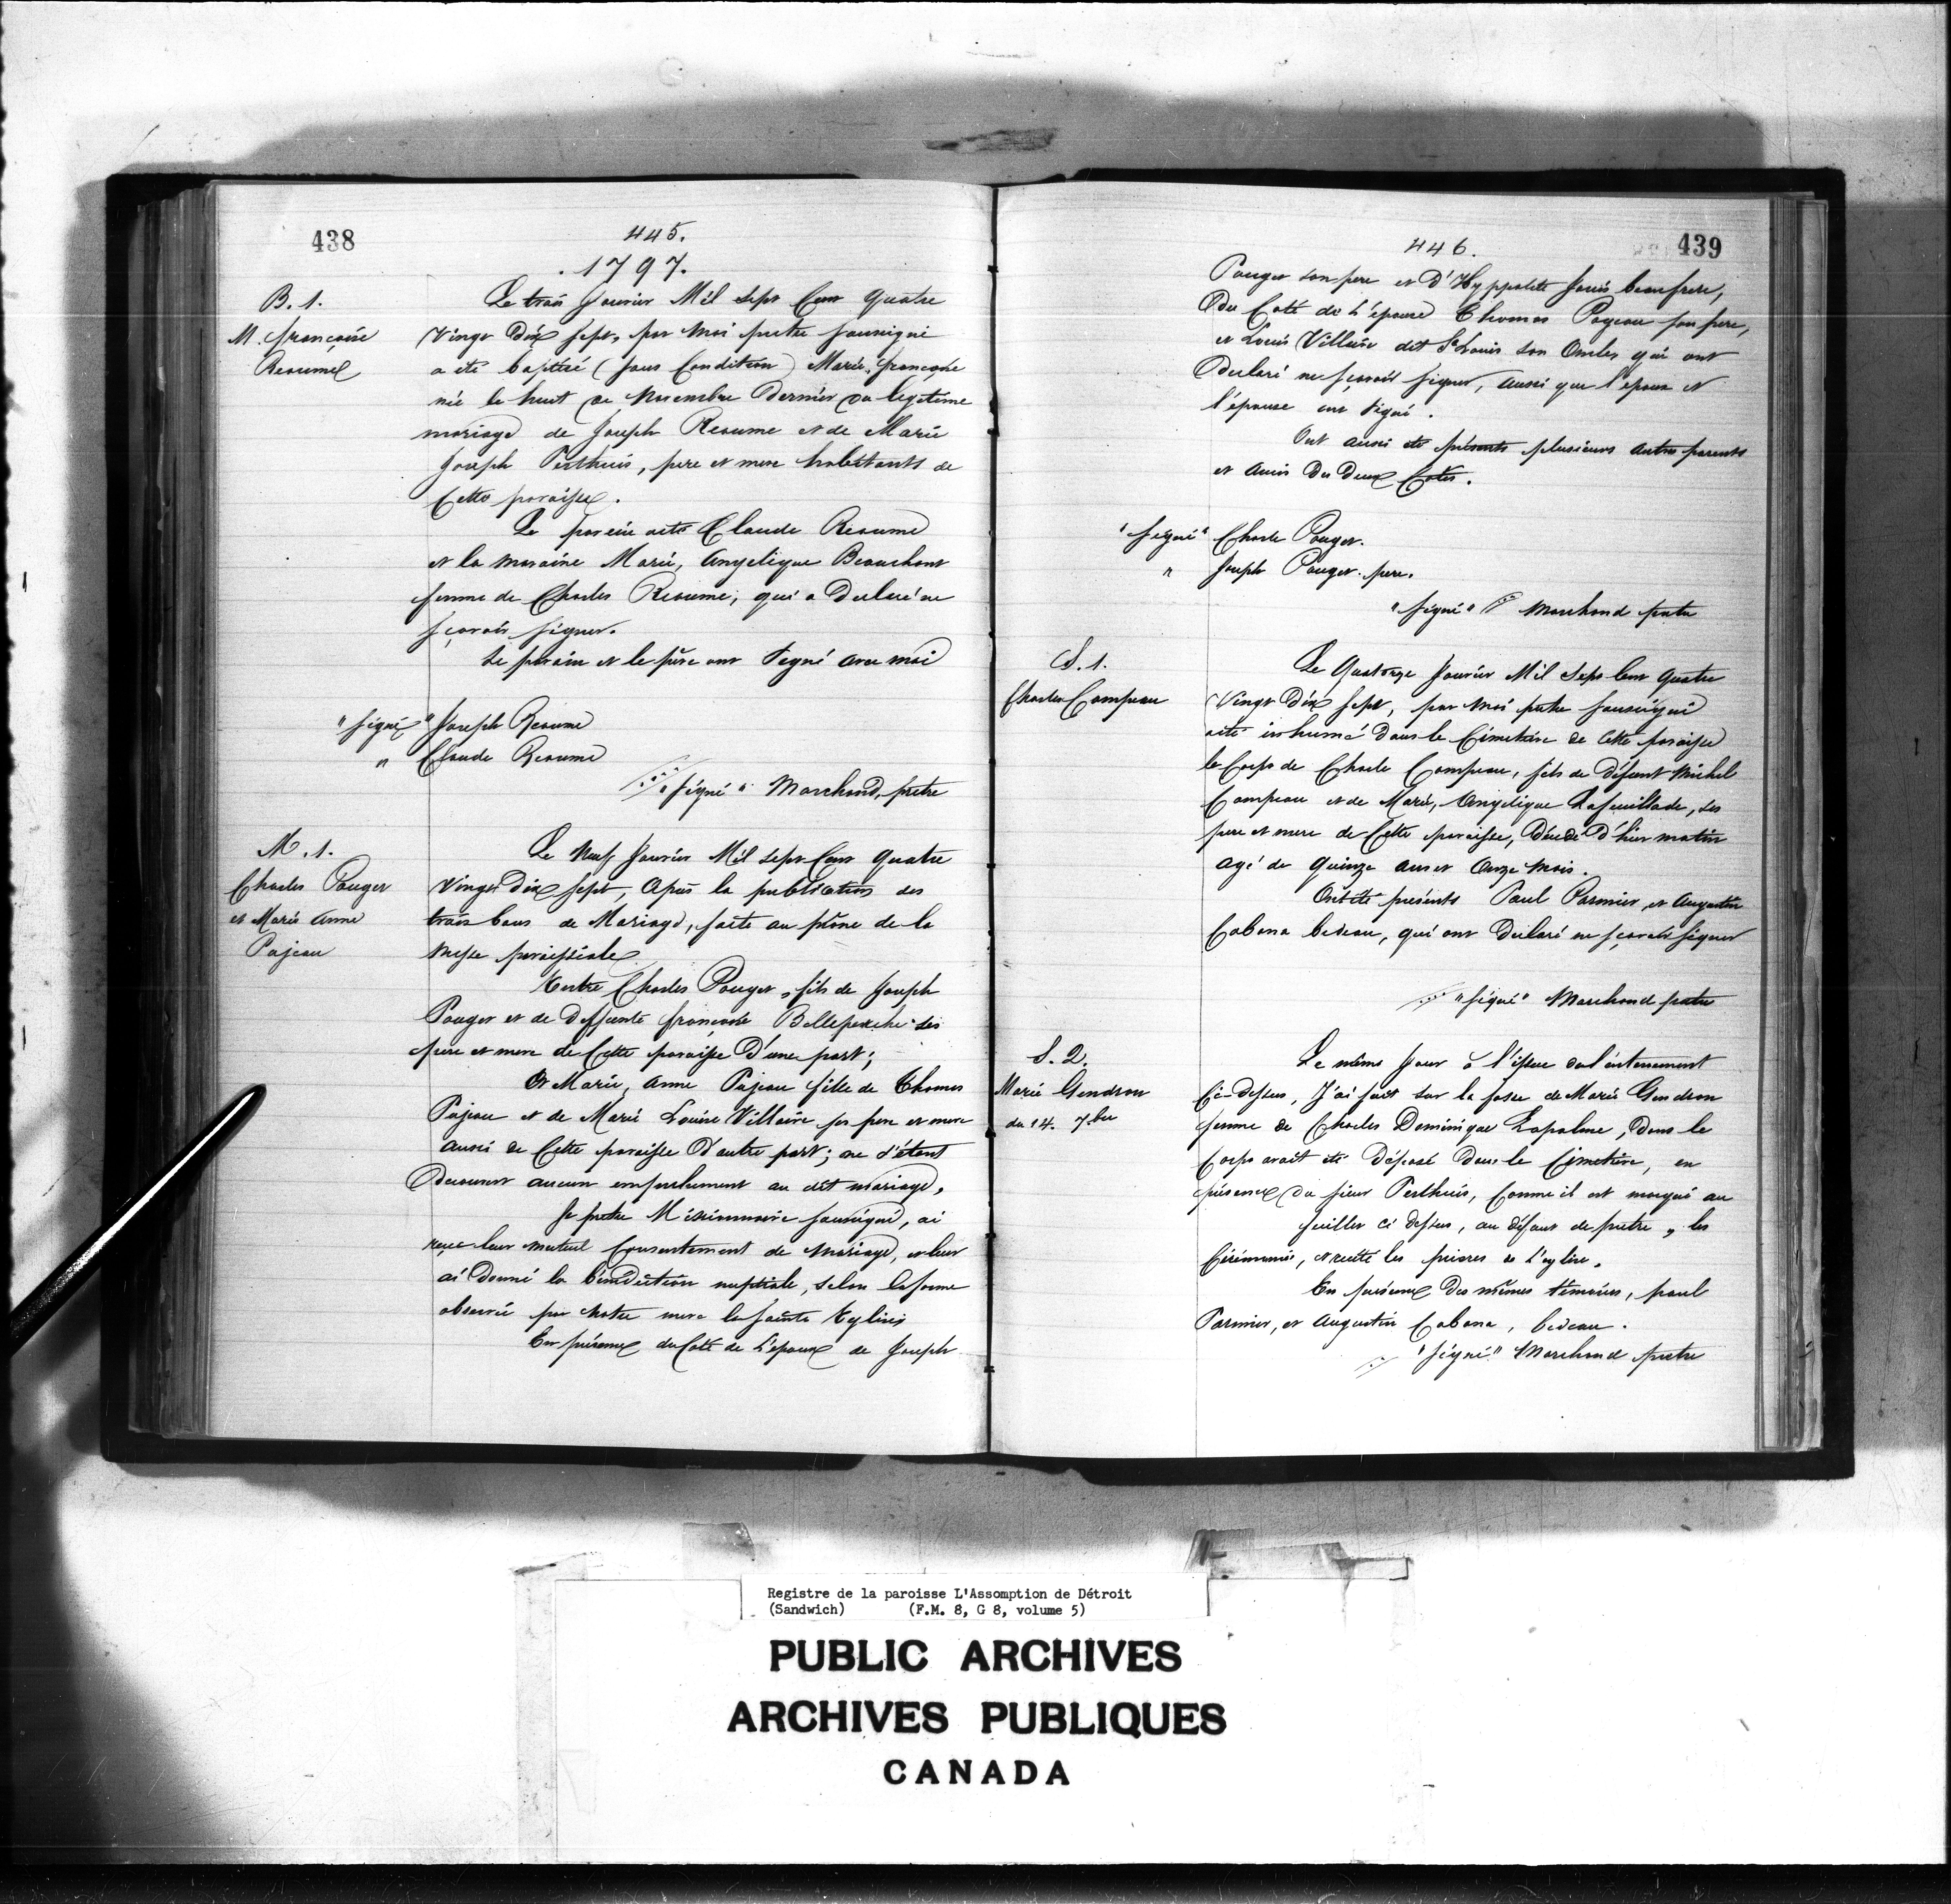 438
445.
1797.
B. 1.
M. françoise
Reaume
Le trois Janvier Mil sept Cent quatre
Vingt Dix sept, par moi prêtre soussigné
a été baptisé (sous Condition) Marie, françoise
née le huit de Novembre Dernier du légitime
mariage de Joseph Reaume et de Marie
Joseph Perthuis, pere et mere habitants de
Cette paroisse.
Le parein a été Claude Reaume
et la maraine Marie, Angelique Beauchant
femme de Charles Reaume, qui a Declaré ne
sçavoir signer.
Le parain et le père ont Signé avec moi
"signé" Joseph Reaume
" Claude Reaume
"signé" Marchand, prêtre
M. 1.
Charles Pouget
et Marie Anne
Pajeau
Le Neuf Janvier Mil sept Cent quatre
Vingt Dix sept, Après la publication des
trois bans de Mariage, faite au prône de la
Messe paroissiale
Entre Charles Pouget, fils de Joseph
Pouget et de Deffunte françoise Belleperche ses
pere et mere de Cette paroisse D'une part;
Et Marie, Anne Pajeau fille de Thomas
Pajeau et de Marie Louise Villaire ses pere et mere
aussi de Cette paroisse D'autre part; ne s'étant
Decouvert aucun empechement au dit mariage,
Je prêtre Missionnaire soussigné, ai
reçu leur mutuel Consentement de Mariage, et leur
ai Donné la bénédiction nuptiale, selon la forme
observée par Notre mere la sainte Eglise
En présence du Coté de L'epoux de Joseph
446.
439
Pouget son pere et D'Hyppolite Janis beaufrere,
Du Coté de L'épouse Thomas Pageau son pere,
et Louis Villaire dit St Louis son Oncles qui ont
Declaré ne sçavoir signer, aussi que l'epoux et
l'épouse ont signé.
Ont aussi été présents plusieurs autres parents
et amis Des Deux Cotés.
"signé" Charle Pouget.
" Joseph Pouget pere.
"signé" Marchand pretre
S. 1.
Charles Campeau
Le Quatorze Janvier Mil Sept Cent Quatre
Vingt Dix sept, par moi prêtre soussigné
a été inhumé Dans le Cimetière de Cette paroisse
le Corps de Charle Campeau, fils de Défunt Michel
Campeau et de Marie, Angelique Lafeuillade, ses
pere et mere de Cette paroisse, Décedé D'hier matin
agé de quinze ans et Onze Mois.
Ont été présents Paul Parmier, et Augustin
Cabana bedeau, qui ont Declaré ne sçavoir signer
"signé" Marchand pretre
S. 2.
Marie Gendron
du 14. 7bre
Le même Jour à l'issue de l'enterrement
Ci-Dessus, J'ai fait sur la fosse de Marie Gendron
femme de Charles Dominique Lapalme, Dont le
Corps avait été Déposé Dans le Cimetière, en
présence du sieur Perthuis, Comme il est marqué au
feuillet ci dessus, au défaut de pretre, les
Cérémonies, et recité les prieres de L'eglise.
En présence Des mêmes témoins, paul
Parmier, et Augustin Cabana, bedeau.
"signé" Marchand pretre
Registre de la paroisse L'Assomption de Détroit
(Sandwich) (F.M. 8, G 8, volume 5)
PUBLIC ARCHIVES
ARCHIVES PUBLIQUES
CANADA